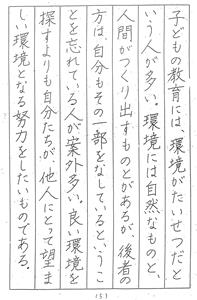 子どもの教育には、環境がたいせつだと
いう人が多い。環境には自然なものと、
人間がつくり出すものとがあるが、後者の
方は、自分もその一部をなしているというこ
とを忘れている人が案外多い。良い環境を
探すよりも自分たちが、他人にとって望ま
しい環境となる努力をしたいものである。
(5)